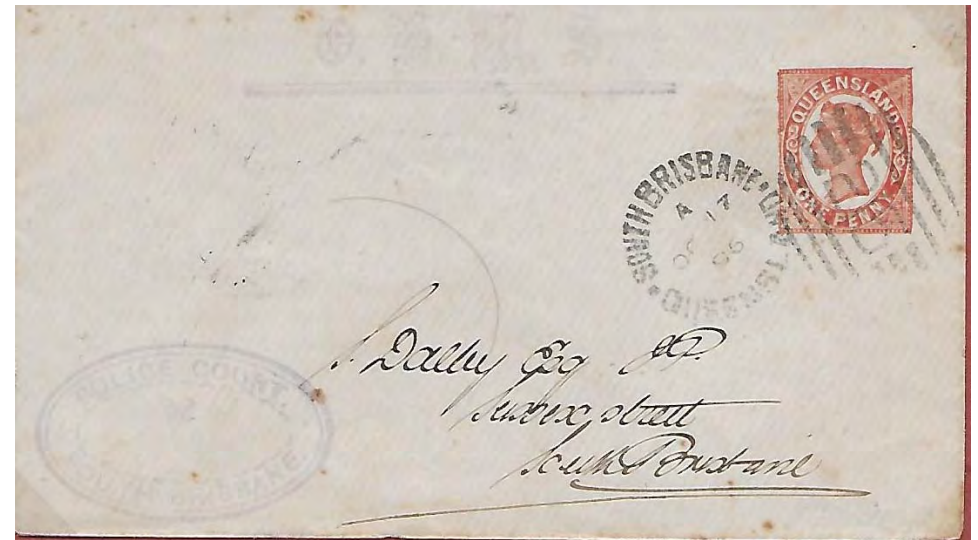 QUEENSLAND
ONE PENNY
SOUTH BRISBANE
A 17
QUEENSLAND
Dalby Esq JP.
Sussex street
South Brisbane
POLICE COURT.
SOUTH BRISBANE